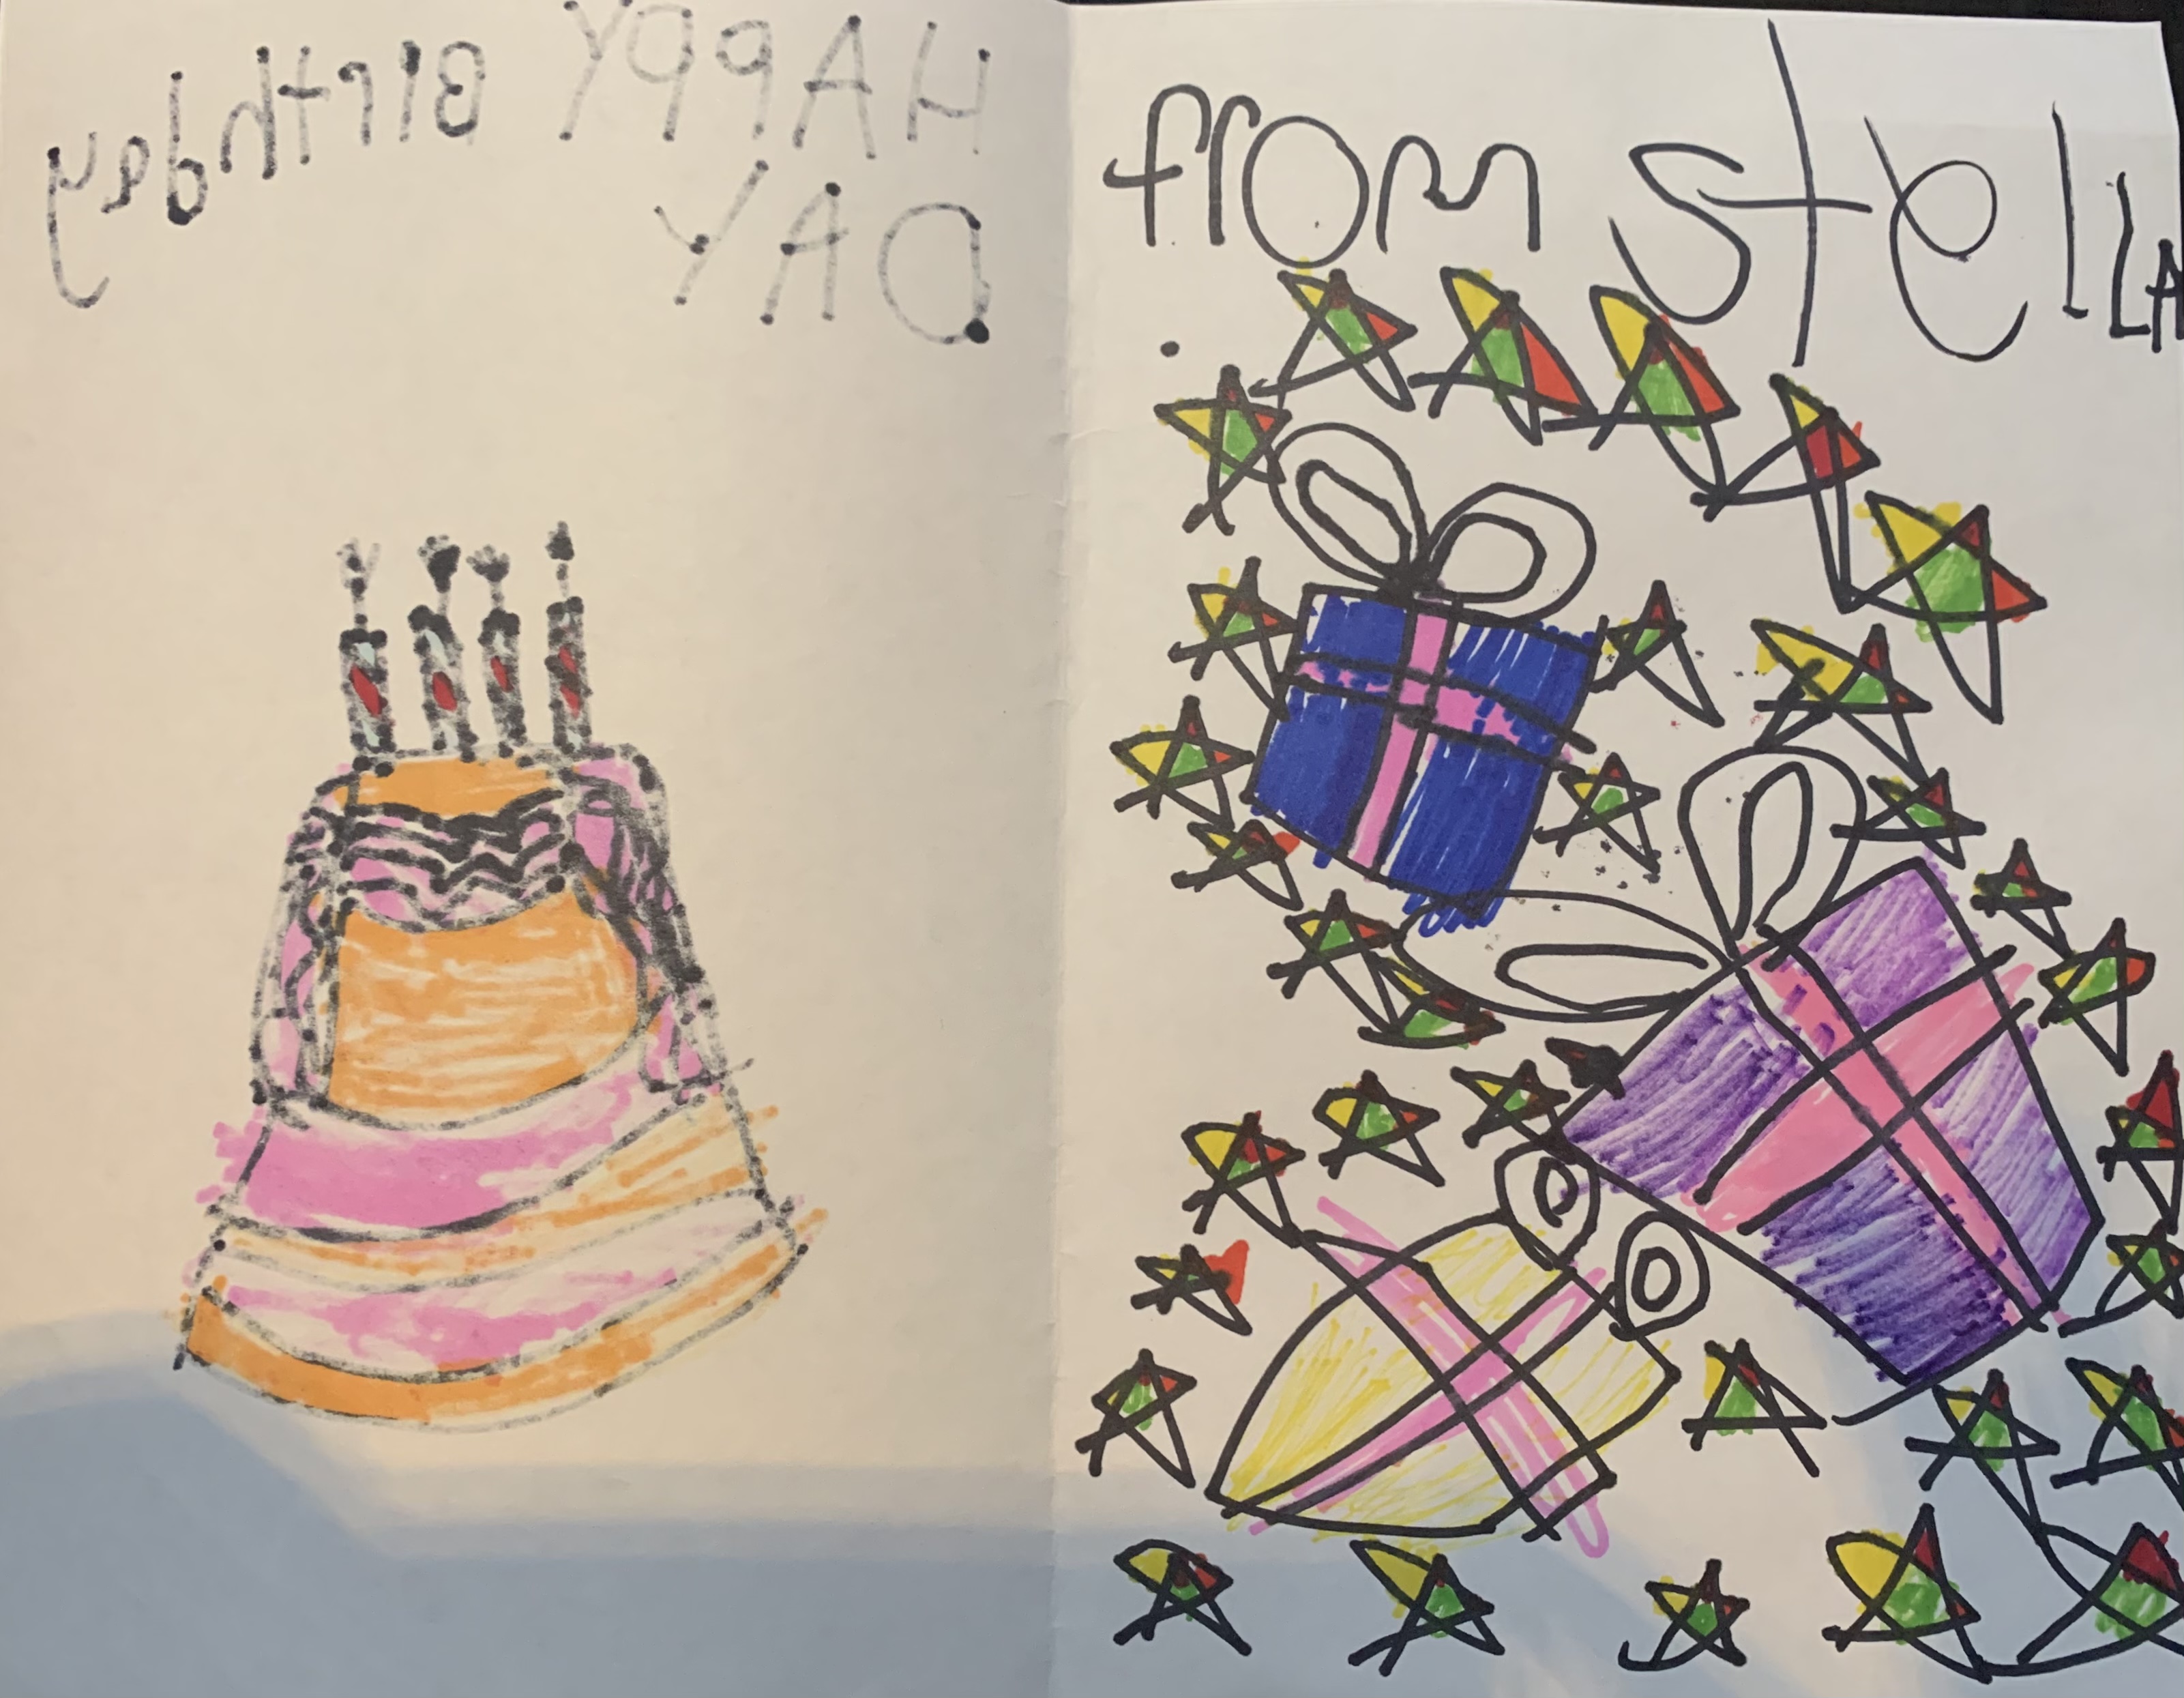 HAppY BIrthday
DAY
from stelLA